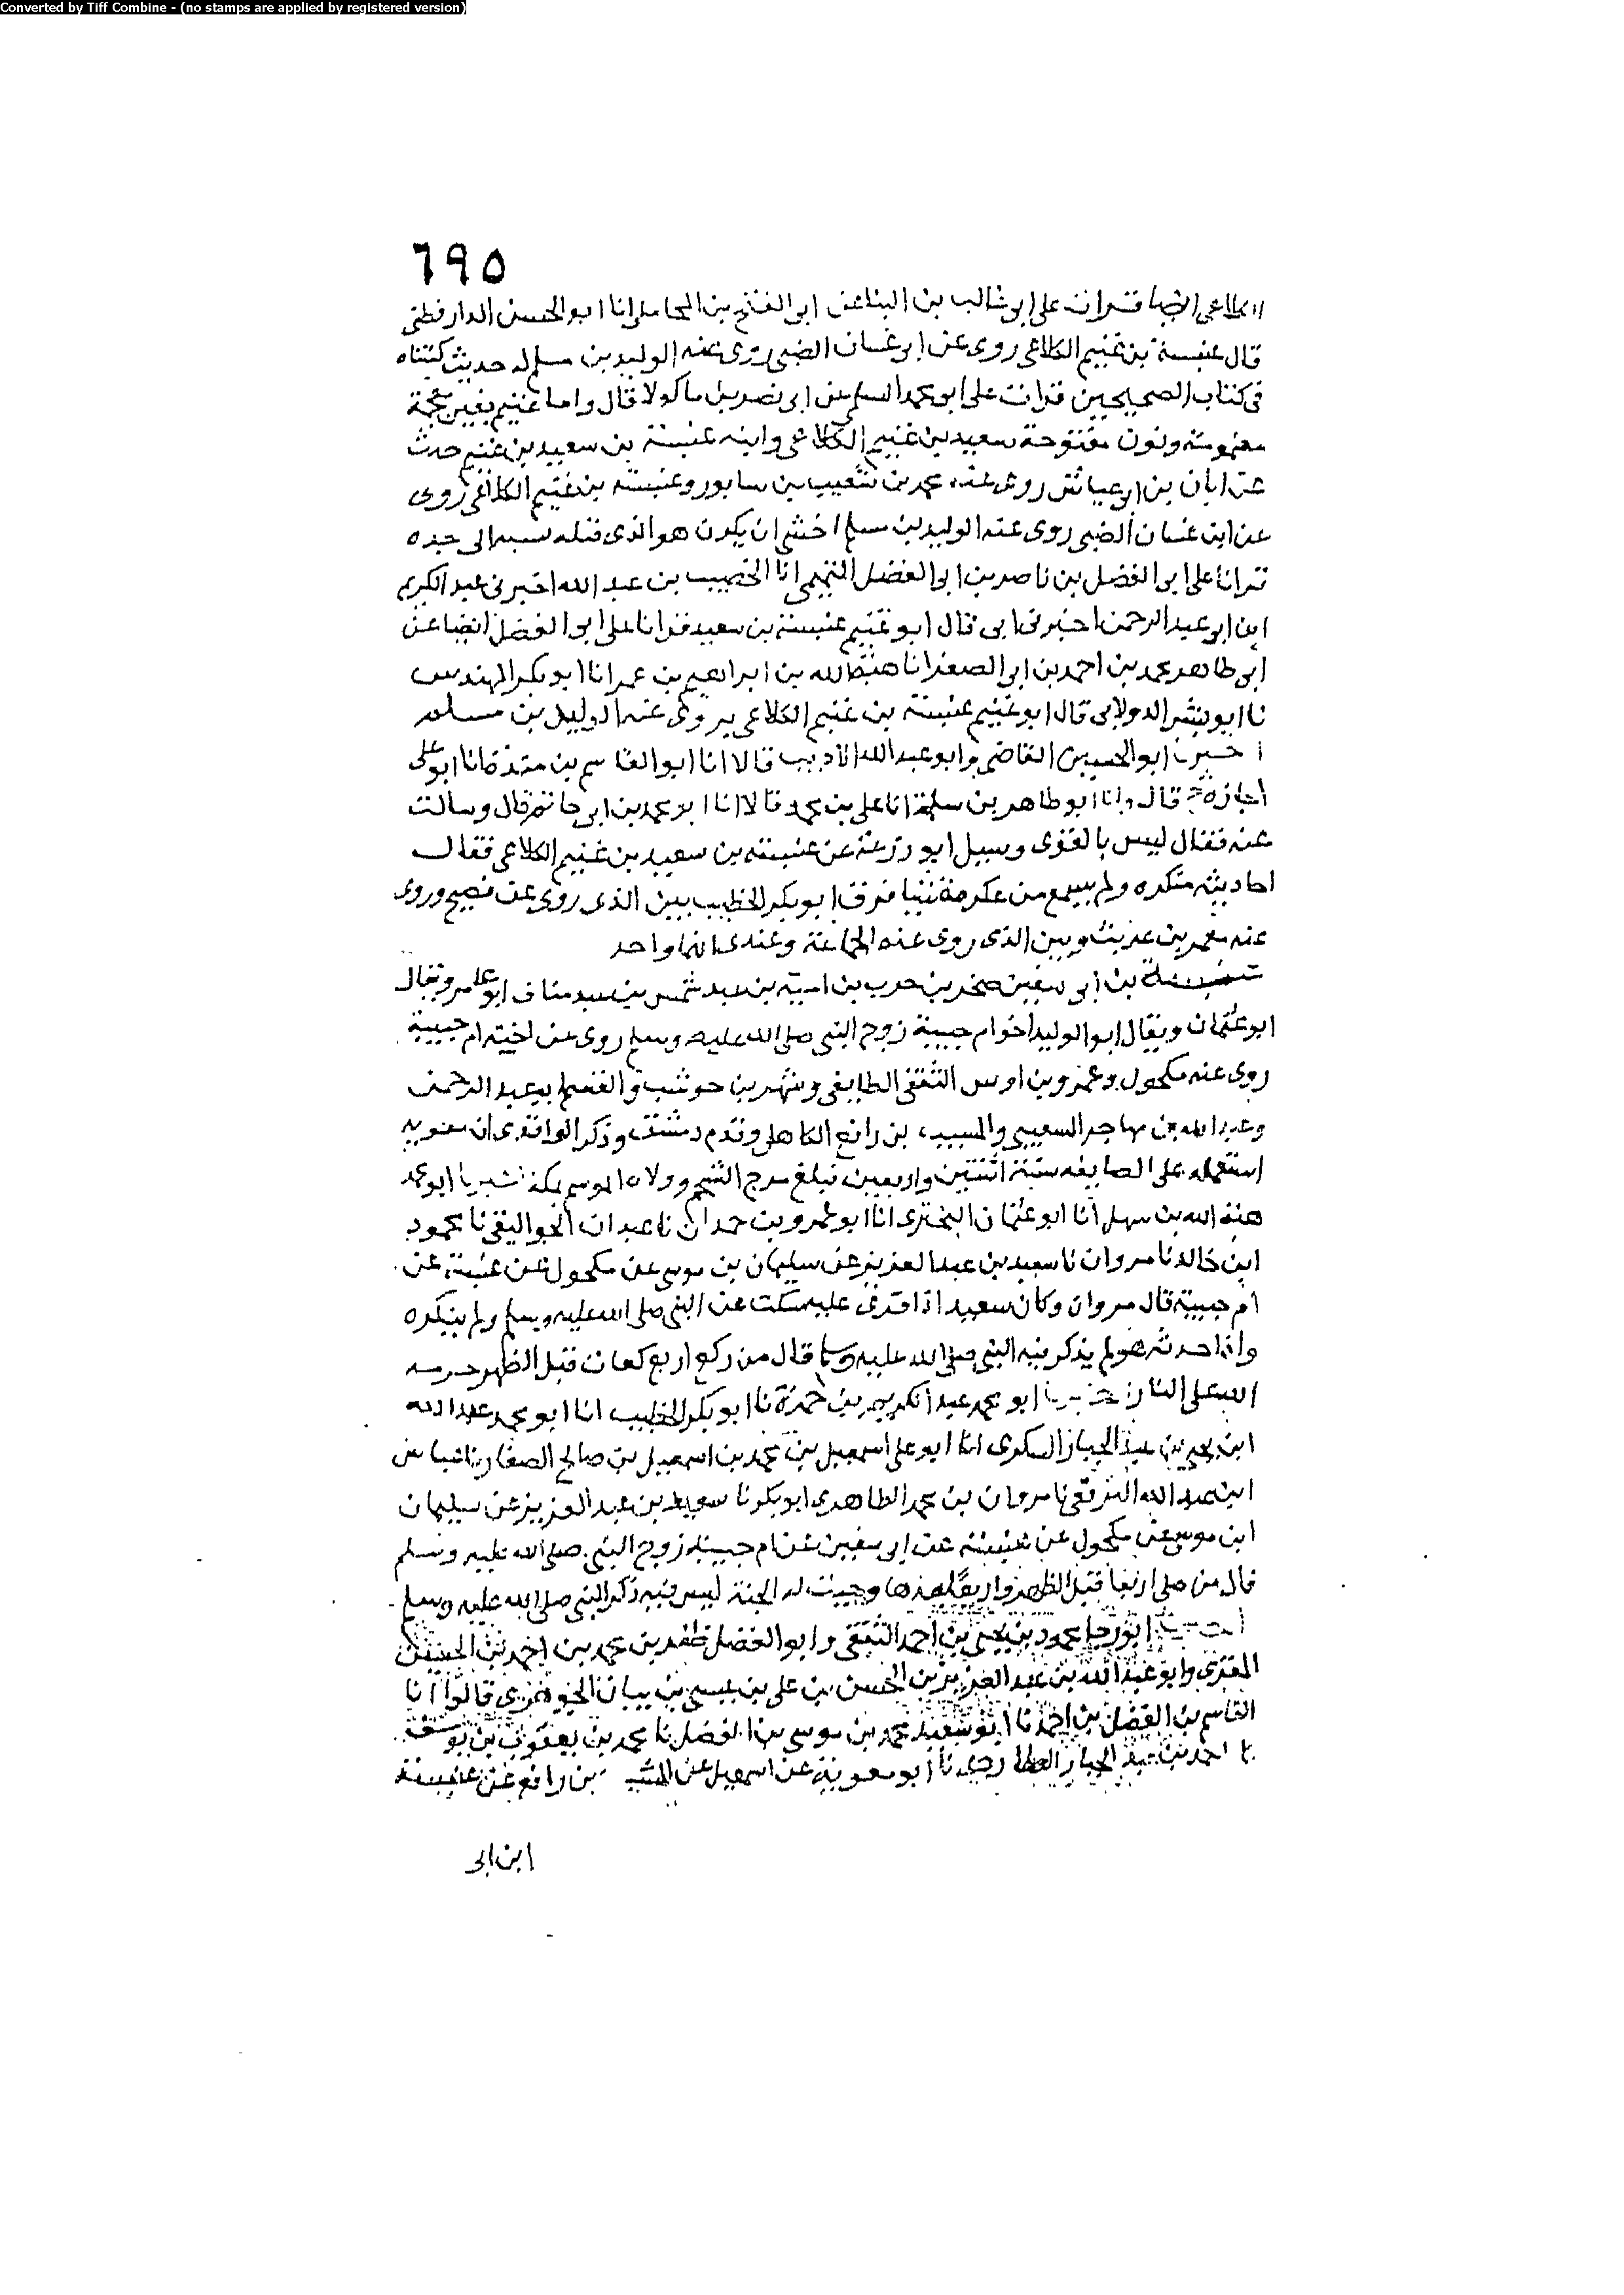 Converted by Tiff Combine - (no stamps are applied by registered version)
٦٩٥
الكلاعي ايضا قرات على ابي غالب بن البنا عن ابي الفتح بن المحاملي انا ابو الحسن الدارقطني
قال عنبسة بن غنيم الكلاعي روى عن ابي غسان الضبي روى عنه الوليد بن مسلم له حديث كتبناه
في كتاب الصحيحين قرات على ابو محمد السلمي عن ابي نصر بن ماكولا قال واما غنيم بغين معجمة
مضمومة ونون مفتوحة سعيد بن غنيم الكلاعي وابنه عنبسة بن سعيد بن غنيم حدث
عن ابان بن ابي عياش روى عنه محمد بن شعيب بن سابور وعنبسة بن غنيم الكلاعي روى
عن ابن غسان الضبي روى عنه الوليد بن مسلم اخشى ان يكون هو الذي قبله نسبه الى جده
قرانا على ابي الفضل بن ناصر بن ابي الفضل التميمي انا الخصيب بن عبد الله اخبرني عبد الكريم
ابن ابي عبد الرحمن اخبرني ابي قال ابو غنيم عنبسة بن سعيد قرانا على ابي الفضل ايضا عن
ابي طاهر محمد بن احمد بن ابي الصقر انا هبة الله بن ابراهيم بن عمر انا ابو بكر المهندس
نا ابو بشر الدولابي قال ابو غنيم عنبسة بن غنيم الكلاعي يروى عنه الوليد بن مسلم
ا خبرنا ابو الحسين القاضي وابو عبد الله الاديب قالا انا ابو القاسم بن مندة انا ابو علي
اجازة قال وانا ابو طاهر بن سلمة انا علي بن محمد قالا انا ابو محمد بن ابي حاتم قال وسالت
عنه فقال ليس بالقوى وسيل ابو زرعة عن عنبسة بن سعيد بن غنيم الكلاعي فقال
احاديثه منكره ولم يسمع من عكرمة شيا فرق ابو بكر الخطيب بين الذي روى عن فصيح وروى
عنه معمر بن عريث وبين الذي روى عنه الجماعة وعندي انهما واحد
عنبسة بن ابي سفين صخر بن حرب بن امية بن عبد شمس بن عبد مناف ابو عامر ويقال
ابو عثمان ويقال ابو الوليد اخو ام حبيبة زوج النبي صلى الله عليه وسلم روى عن اخته ام حبيبة
روى عنه مكحول وعمرو بن اوس الثقفي الطايفي وشهر بن حوشب والقسم ابو عبد الرحمن
وعبد الله بن مهاجر الشعيثي والمسيب بن رافع الكاهلي وقدم دمشق وذكر الواقدي ان معوية
استعمله على الصايفه سنة اثنتين واربعين فبلغ مرج الشحم وولاه الموسم بمكة اخبرنا ابو محمد
هبة الله بن سهل انا ابو عثمان البختري انا ابو عمرو بن حمدان نا عبدان الجواليقي نا محمود
ابن خالد نا مروان نا سعيد بن عبد العزيز عن سليمان بن موسى عن مكحول عن عنبسة عن
ام حبيبة قال مروان وكان سعيد اذا قرئ عليه سكت عن النبي صلى الله عليه وسلم ولم ينكره
واذا حدث هو لم يذكر فيه النبي صلى الله عليه وسلم قال من ركع اربع ركعات قبل الظهر حرمه
الله على النار اخبرنا ابو محمد عبد الكريم بن حمزة نا ابو بكر الخطيب انا ابو محمد عبد الله
ابن يحيى بن عبد الجبار السكري انا ابو علي اسمعيل بن محمد بن اسمعيل بن صالح الصفار نا عباس
ابن عبد الله الترقفي نا مروان بن محمد الطاهري ابو بكر نا سعيد بن عبد العزيز عن سليمان
ابن موسى عن مكحول عن عنبسة عن ابي سفين عن ام حبيبة زوج النبي صلى الله عليه وسلم
قال من صلى اربعا قبل الظهر واربعا بعدها وجبت له الجنة ليس فيه ذكر النبي صلى الله عليه وسلم
اخبرنا ابو رجا محمود بن يحيى بن احمد الثقفي وابو الفضل ظفر بن محمد بن احمد بن الحسين
المقري وابو عبد الله بن عبد العزيز بن الحسن بن علي بن عيسى بن بيان قالوا انا
القاسم بن الفضل بن احمد نا ابو سعيد محمد بن موسى بن الفضل نا محمد بن يعقوب بن يوسف
نا احمد بن عبد الجبار العطاردي نا ابو معوية عن اسمعيل عن المسيب بن رافع عن عنبسة
ابن ابي